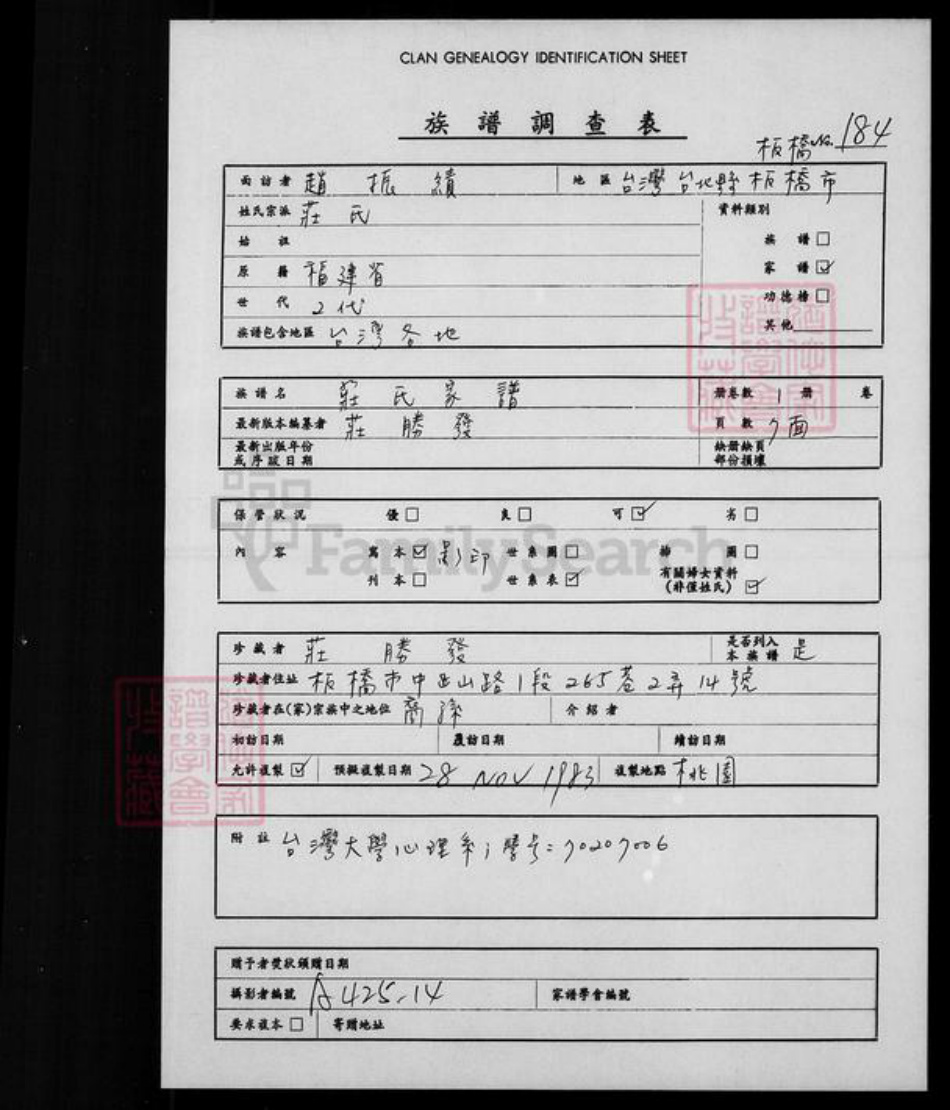 CLAN GENEALOGY IDENTIFICATION SHEET
族譜調查表
板橋 No. 184
面訪者 趙振績 地區 台灣台北縣板橋市
姓氏宗派 莊氏 資料類別
始祖 族譜 □
原籍 福建省 家譜 ☑
世代 2代 功德榜 □
族譜包含地區 台灣各地 其他
族譜名 莊氏家譜 册卷數 1 册 卷
最新版本編纂者 莊勝發 頁數 7面
最新出版年份 缺册缺頁
或序跋日期 部份損壞
保管狀況 優 □ 良 □ 可 ☑ 劣 □
內容 寫本 ☑ 影印 世系圖 □ 插圖 □
刊本 □ 世系表 ☑ 有關婦女資料
(非僅姓氏) ☑
FamilySearch
珍藏者 莊勝發 是否列入
本族譜 是
珍藏者住址 板橋市中山路1段265巷2弄14號
珍藏者在(家)宗族中之地位 裔孫 介紹者
初訪日期 覆訪日期 續訪日期
允許複製 ☑ 預擬複製日期 28 NOV 1983 複製地點 桃園
附註 台灣大學心理系; 學号: 70207006
贈予者獎狀頒贈日期
攝影者編號 A425-14 家譜學會編號
要求複本 □ 寄贈地址